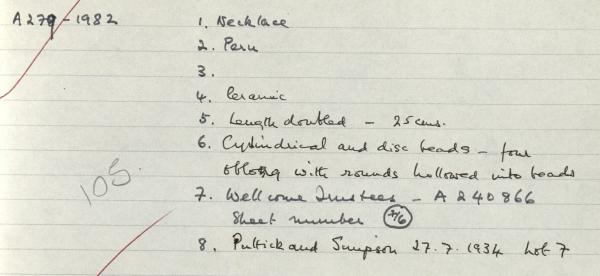 A279-1982 1. Necklace
2. Peru
3.
4. Ceramic
5. Length doubled - 25cms.
6. Cylindrical and disc beads - four
oblong with rounds hollowed into beads
105.
7. Wellcome Trustees - A 240866
Sheet number 376
8. Puttick and Simpson 27.7.1934 Lot 7